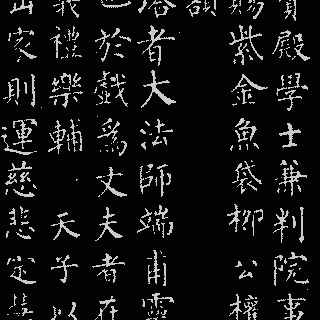 賢殿學士兼判院事
賜紫金魚袋柳公權
額
塔者大法師端甫靈
也於戲爲丈夫者在
義禮樂輔 天子以
出家則運慈悲定慧